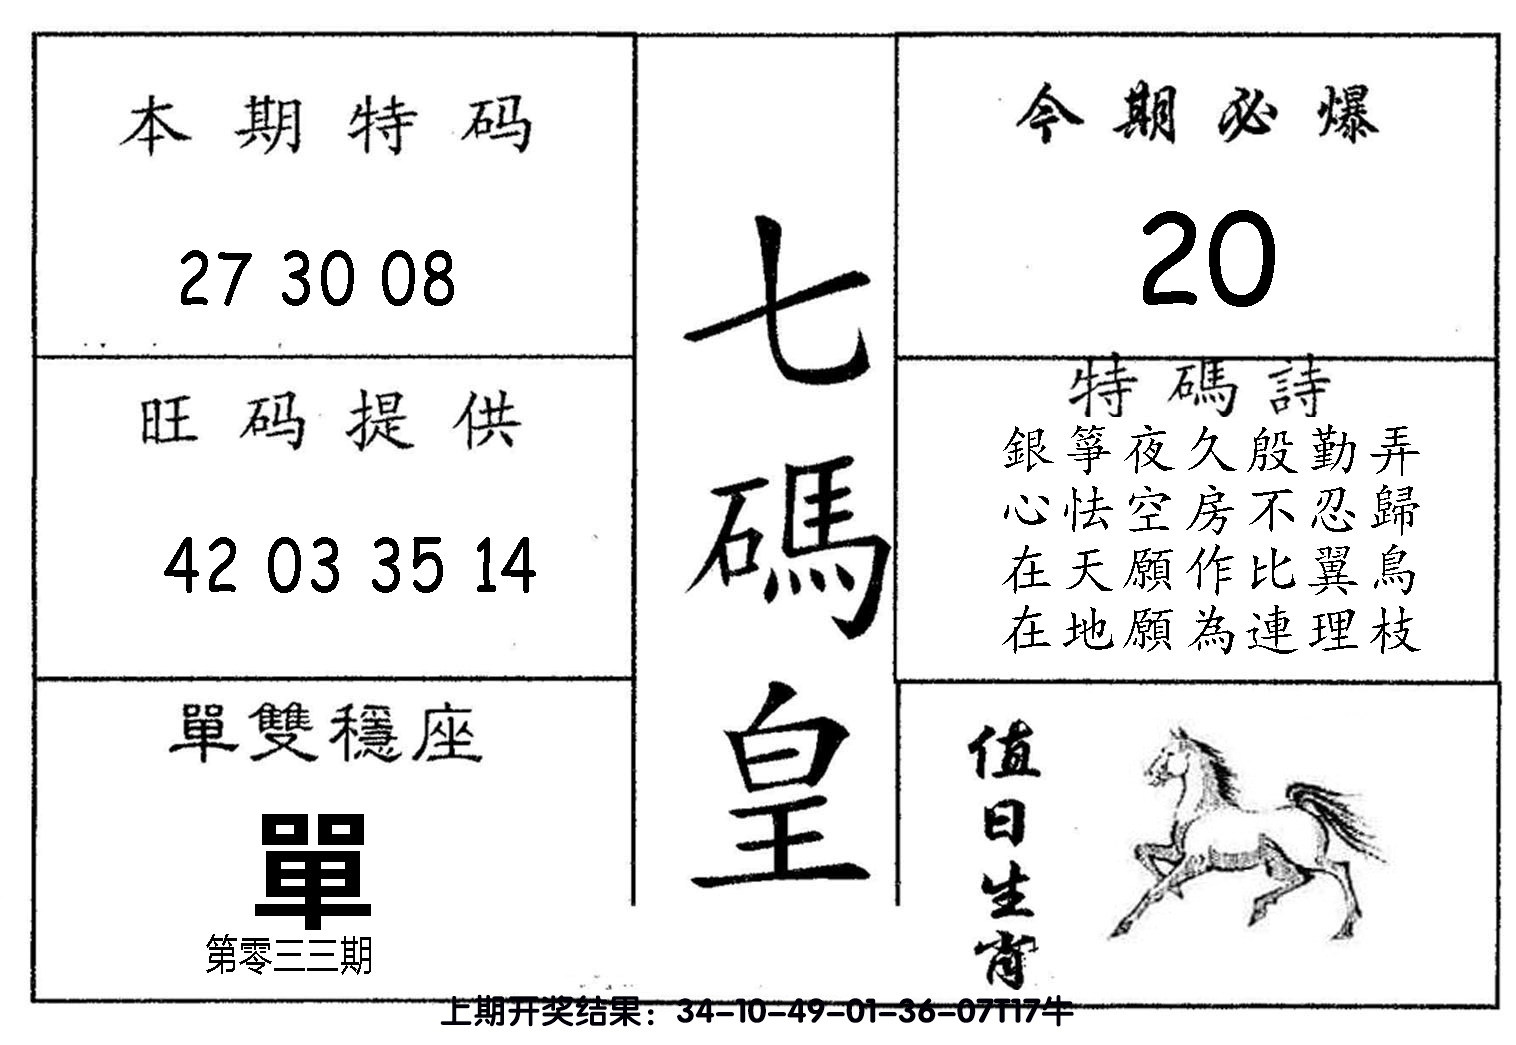 本期特码
27 30 08
旺码提供
42 03 35 14
單雙穩座
單
第零三三期
七碼皇
今期必爆
20
特碼詩
銀箏夜久殷勤弄
心怯空房不忍歸
在天願作比翼鳥
在地願為連理枝
值日生肖
上期开奖结果：34-10-49-01-36-07T17牛